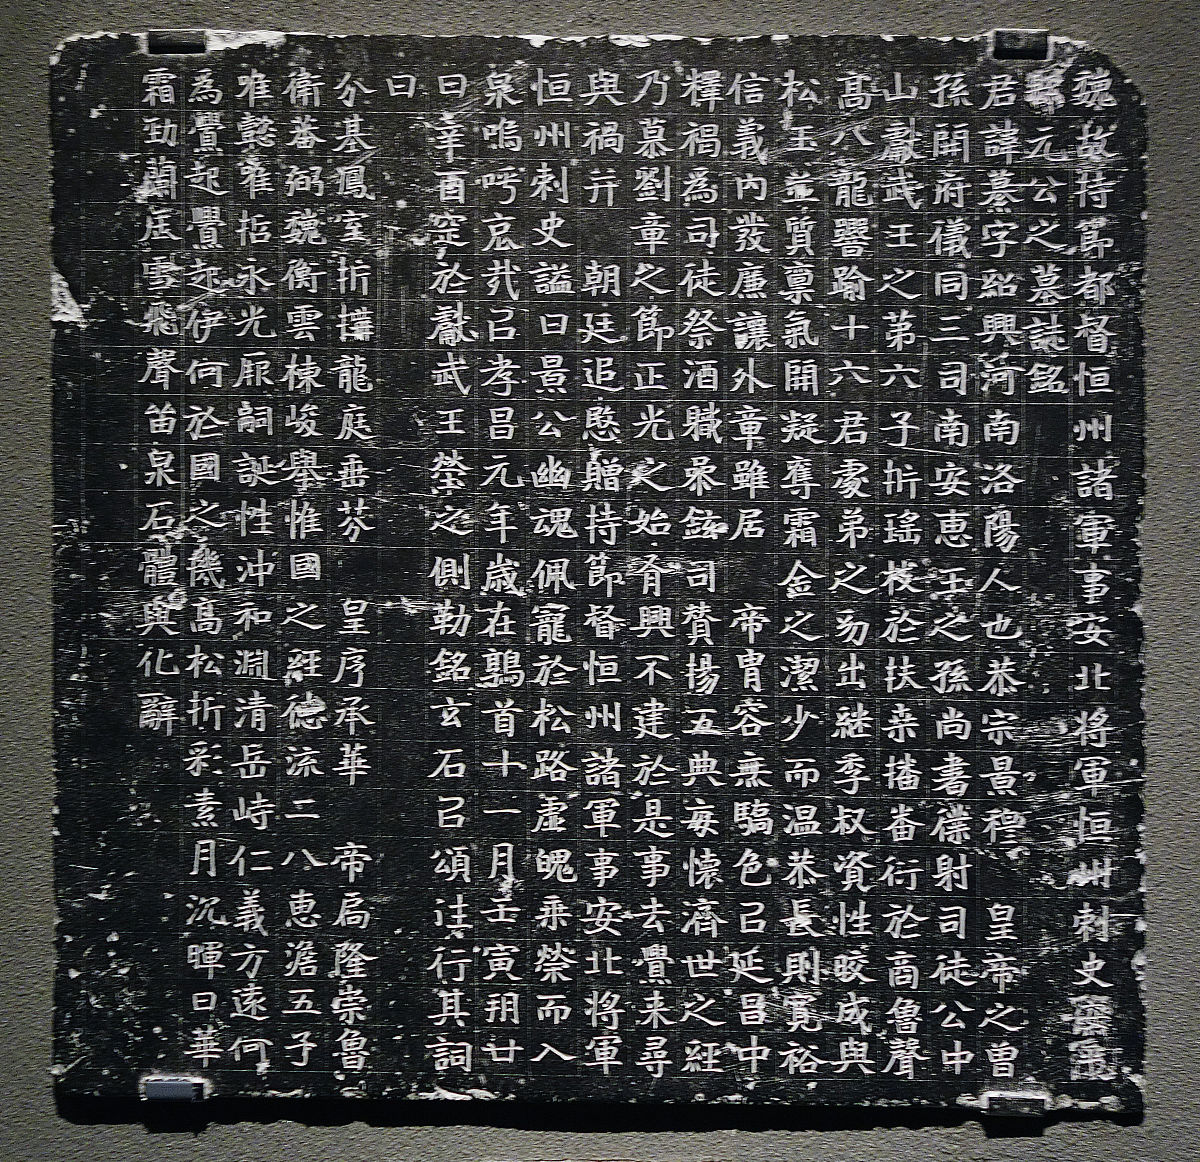 魏故持節都督恒州諸軍事安北将軍恒州刺史
元公之墓誌銘
君諱纂字紹興河南洛陽人也恭宗景穆 皇帝之曾
孫開府儀同三司南安惠王之孫尚書僕射司徒公中
山獻武王之第六子析瑤枝於扶桒播畨衍於商魯聲
高八龍響踰十六君處弟之一出継季叔資性皎成與
松玉並質稟氣開凝奪霜金之潔少而温恭長則寬裕
信義內發廉讓外章雖居 帝胄容無驕色已延昌中
釋褐為司徒祭酒職叅鉉司賛揚五典每懷濟世之経
乃慕劉章之節正光之始有興不建於是事去舋来尋
與禍并 朝廷追愍贈持節督恒州諸軍事安北将軍
恒州刺史謚曰景公幽魂佩寵於松路虛魄乘榮而入
泉嗚呼哀㦲已孝昌元年歲在鶉首十一月壬寅朔廿
日辛酉窆於獻武王塋之側勒銘玄石已頌往行其詞
曰
分基鳳室折構龍庭垂芬 皇序承華 帝扃隆崇魯
衛蕃弼魏衡雲棟峻舉惟國之経德流二八惠澹五子
唯懿唯哲永光厥嗣誕性沖和淵清岳峙仁義方遠何
為舋起舋起伊何於國之機高松折彩素月沉暉日華
霜勁蘭居雪飛聲笛泉石體與化辭